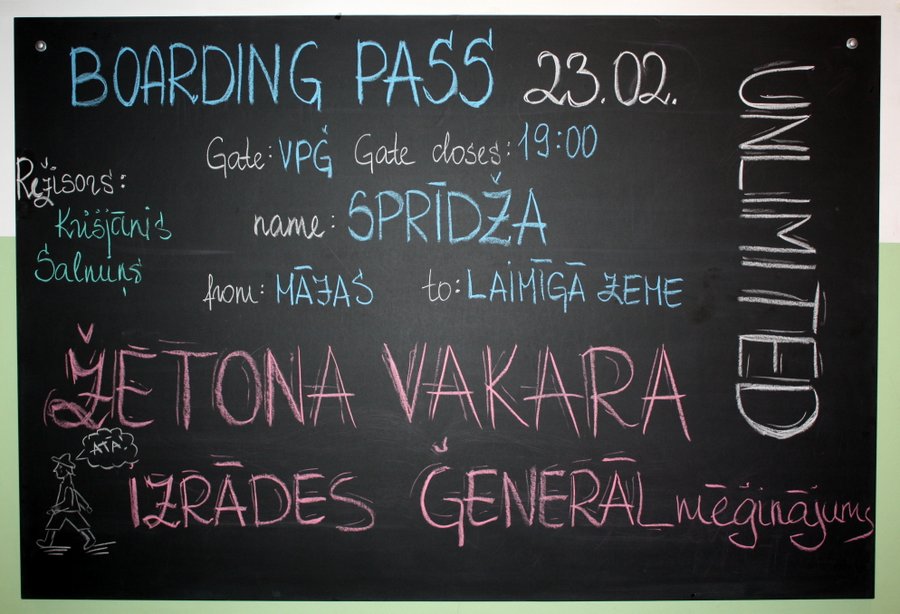 BOARDING PASS 23.02.
Gate: VPĢ Gate closes: 19:00
Režisors:
Krišjānis
Šalmiņš
name: SPRĪDŽA
from: MĀJAS to: LAIMĪGĀ ZEME
UNLIMITED
ŽETONA VAKARA
ATĀ.
IZRĀDES ĢENERĀLmēģinājums